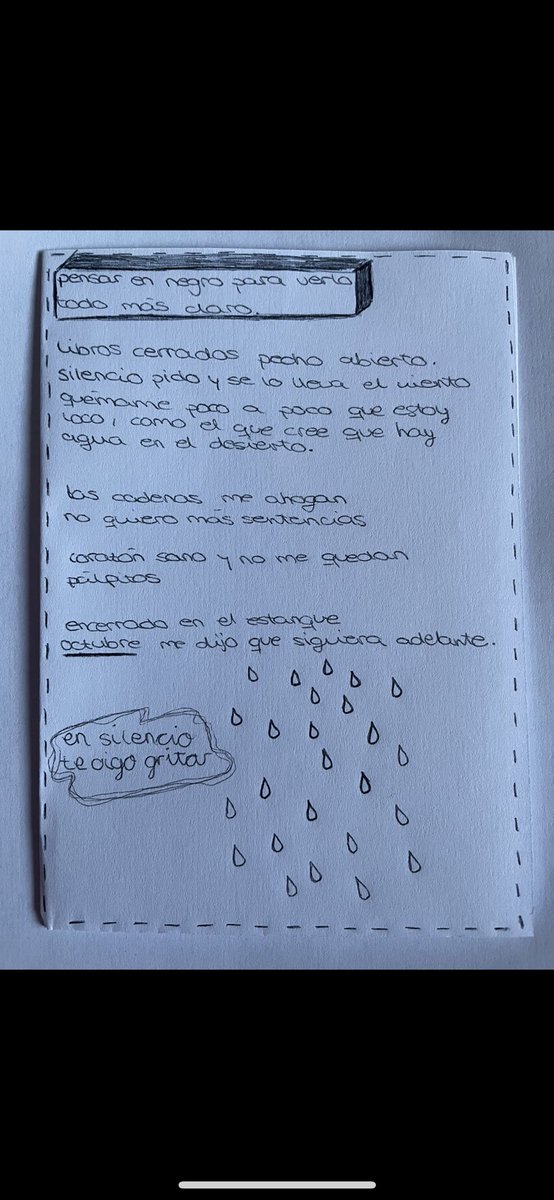 pensar en negro para verlo
todo más claro.
libros cerrados pecho abierto.
silencio pido y se lo lleva el viento
quémame poco a poco que estoy
loco, como el que cree que hay
agua en el desierto.
las cadenas me ahogan
no quiero más sentencias
corazón sano y no me quedan
pálpitos
encerrado en el estanque
octubre me dijo que siguiera adelante.
en silencio
te oigo gritar